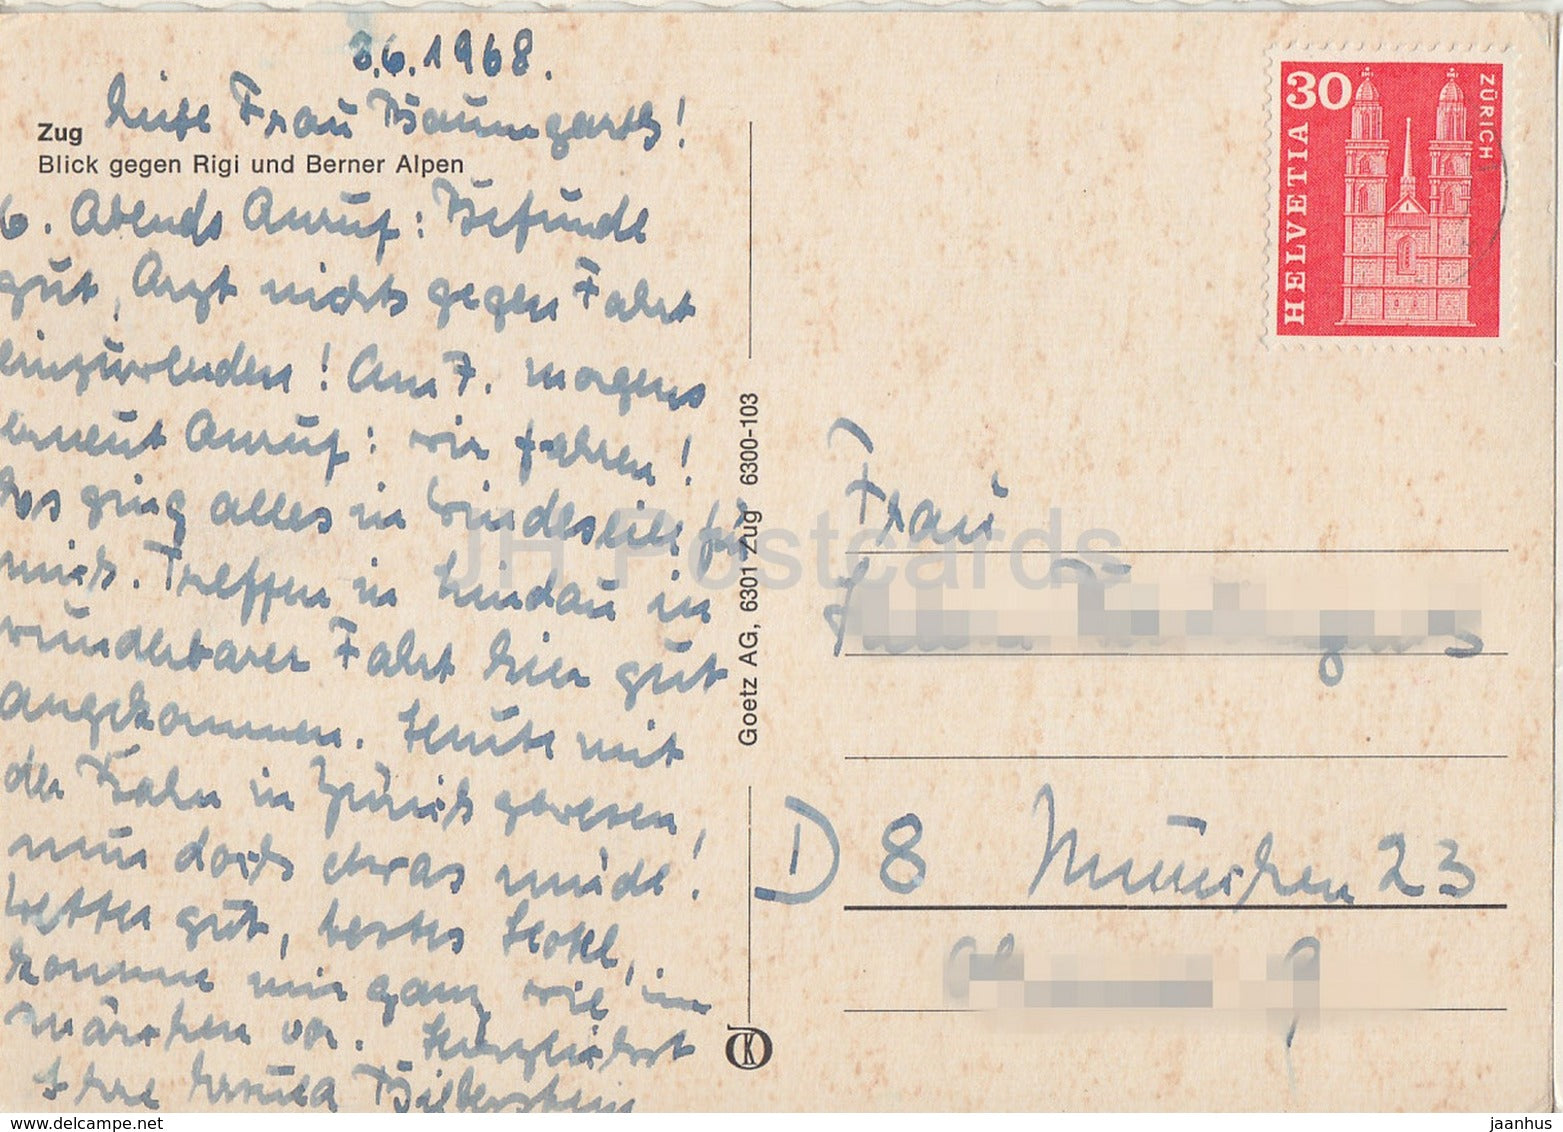 8.6.1968.
Liebe Frau Baumgarts!
Zug
Blick gegen Rigi und Berner Alpen
6. Abends Anruf: Befunde
gut, Arzt nichts gegen Fahrt
einzuwenden! Am 7. morgens
erneut Anruf: wir fahren!
Das ging alles in Windeseile für
mich. Treffen in Lindau in
wunderbarer Fahrt hier gut
angekommen. Heute mit
der Bahn in Zürich gewesen,
nun doch etwas müde!
Wetter gut, bestes Hotel,
komme mir ganz wie im
Märchen vor. Herzlichst
Ihre Ursula Bieberstein
Goetz AG, 6301 Zug 6300-103
HELVETIA
30
ZÜRICH
Frau
D 8 München 23
JH Postcards
www.delcampe.net
jaanhus